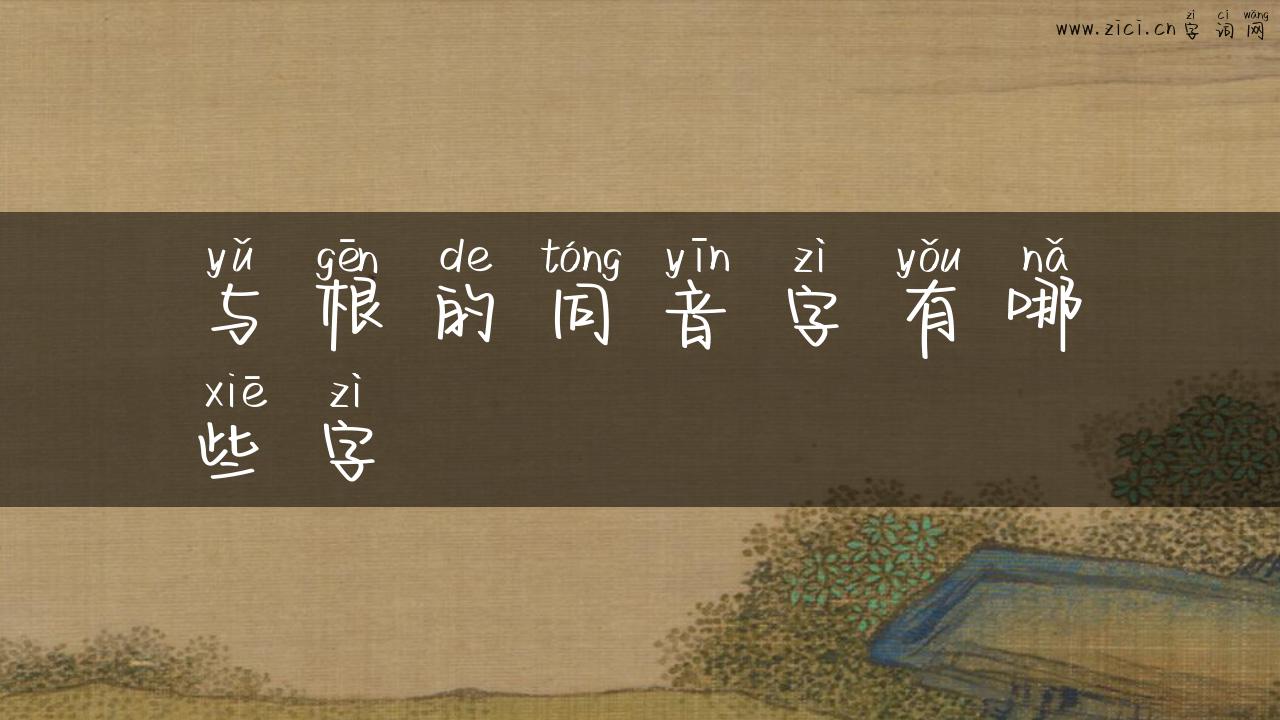 zì cí wǎng
www.zici.cn 字词网
yǔ gēn de tóng yīn zì yǒu nǎ
与根的同音字有哪
xiē zì
些字